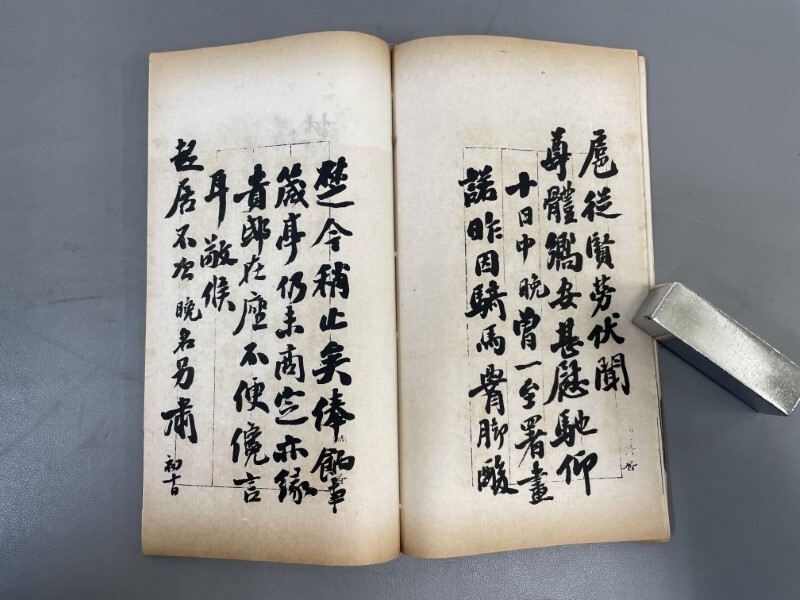 扈從賢勞伏聞
尊體嚮安甚慰馳仰
十日中晚曾一至署畫
諾昨因騎馬臀脚酸
楚今稍止矣俸餉事
箴亭仍未商定亦緣
貴邸在座不便儳言
耳敬候
起居不次晚名另肅 初十日